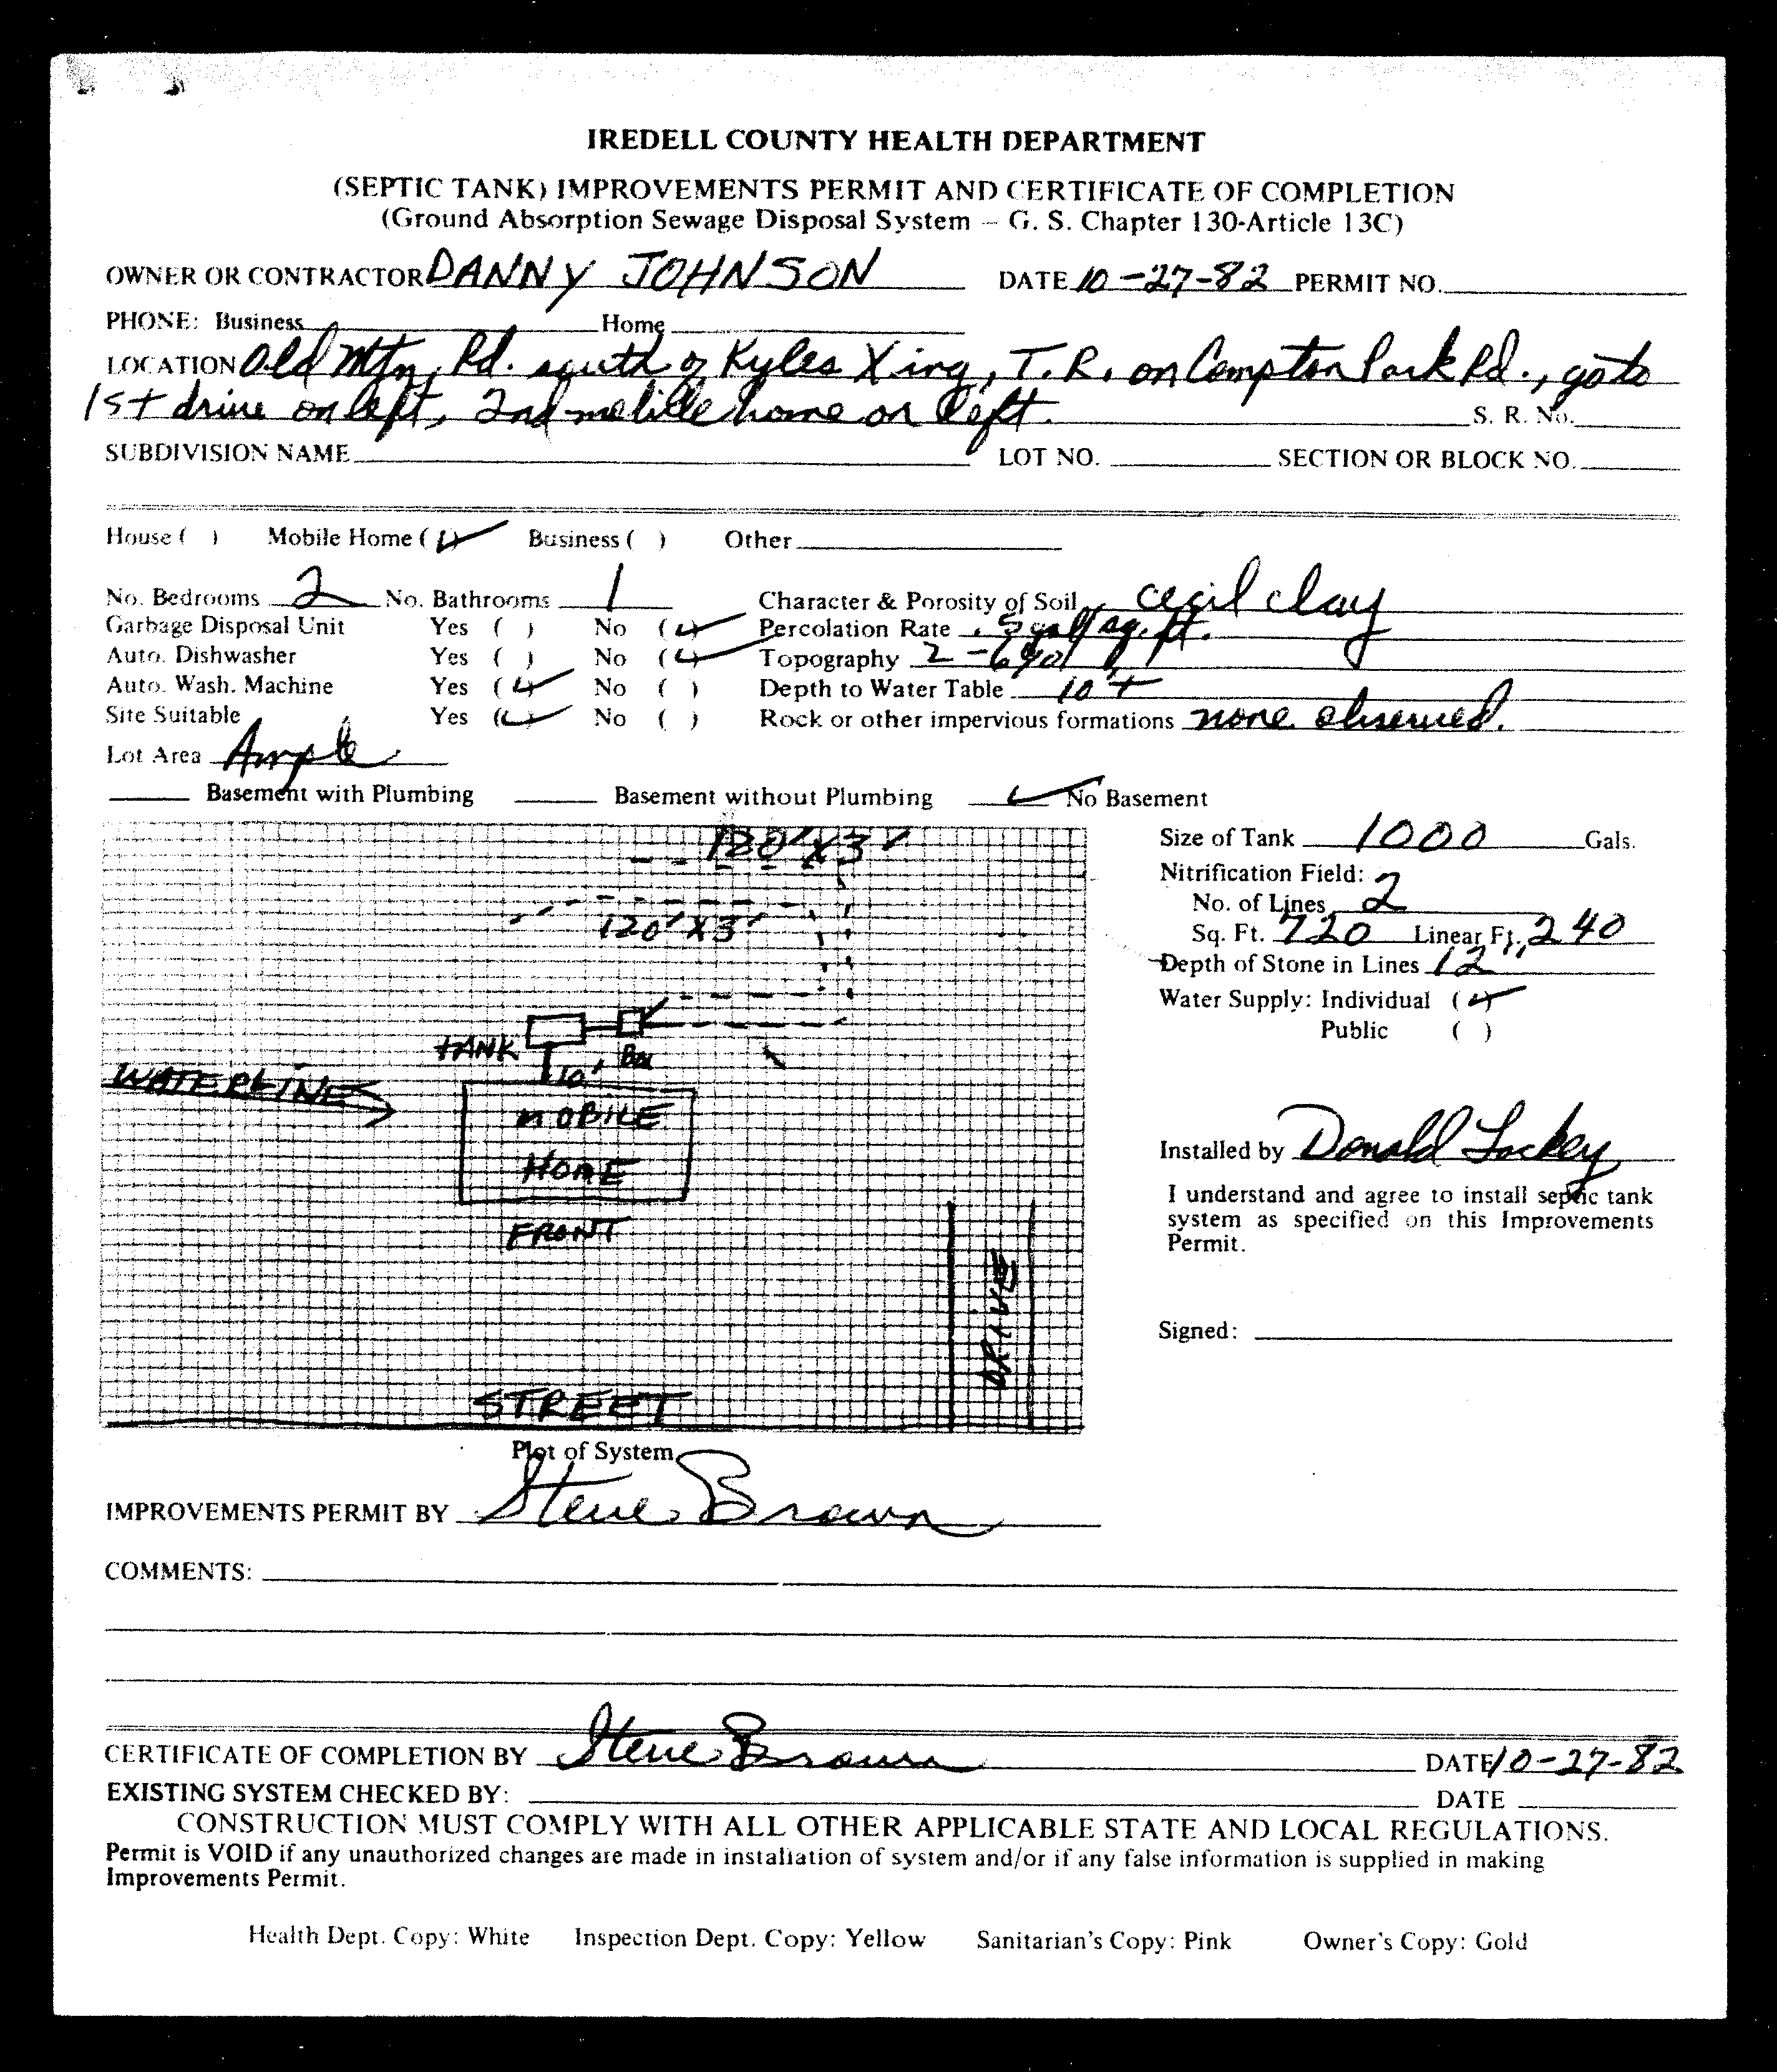 IREDELL COUNTY HEALTH DEPARTMENT
(SEPTIC TANK) IMPROVEMENTS PERMIT AND CERTIFICATE OF COMPLETION
(Ground Absorption Sewage Disposal System – G. S. Chapter 130-Article 13C)
OWNER OR CONTRACTOR DANNY JOHNSON DATE 10-27-82 PERMIT NO.
PHONE: Business Home
LOCATION Old Mtn. Rd. south of Kyles Xing, T.R. on Compton Park Rd., go to
1st drive on left, 2nd mobile home on left. S. R. No.
SUBDIVISION NAME LOT NO. SECTION OR BLOCK NO.
House ( ) Mobile Home (✓) Business ( ) Other
No. Bedrooms 2 No. Bathrooms 1 Character & Porosity of Soil cecil clay
Garbage Disposal Unit Yes ( ) No (✓) Percolation Rate .5 gal/sq. ft.
Auto. Dishwasher Yes ( ) No (✓) Topography 2-6%
Auto. Wash. Machine Yes (✓) No ( ) Depth to Water Table 10'+
Site Suitable Yes (✓) No ( ) Rock or other impervious formations none observed.
Lot Area Ample
Basement with Plumbing Basement without Plumbing ✓ No Basement
120'X3'
120'X3'
TANK
Box
10'
WATERLINE
MOBILE
HOME
FRONT
DRIVE
STREET
Plot of System
Size of Tank 1000 Gals.
Nitrification Field:
No. of Lines 2
Sq. Ft. 720 Linear Ft. 240
Depth of Stone in Lines 12"
Water Supply: Individual (✓)
Public ( )
Installed by Donald Lackey
I understand and agree to install septic tank
system as specified on this Improvements
Permit.
Signed:
IMPROVEMENTS PERMIT BY Steve Brown
COMMENTS:
CERTIFICATE OF COMPLETION BY Steve Brown DATE 10-27-82
EXISTING SYSTEM CHECKED BY: DATE
CONSTRUCTION MUST COMPLY WITH ALL OTHER APPLICABLE STATE AND LOCAL REGULATIONS.
Permit is VOID if any unauthorized changes are made in installation of system and/or if any false information is supplied in making
Improvements Permit.
Health Dept. Copy: White Inspection Dept. Copy: Yellow Sanitarian's Copy: Pink Owner's Copy: Gold